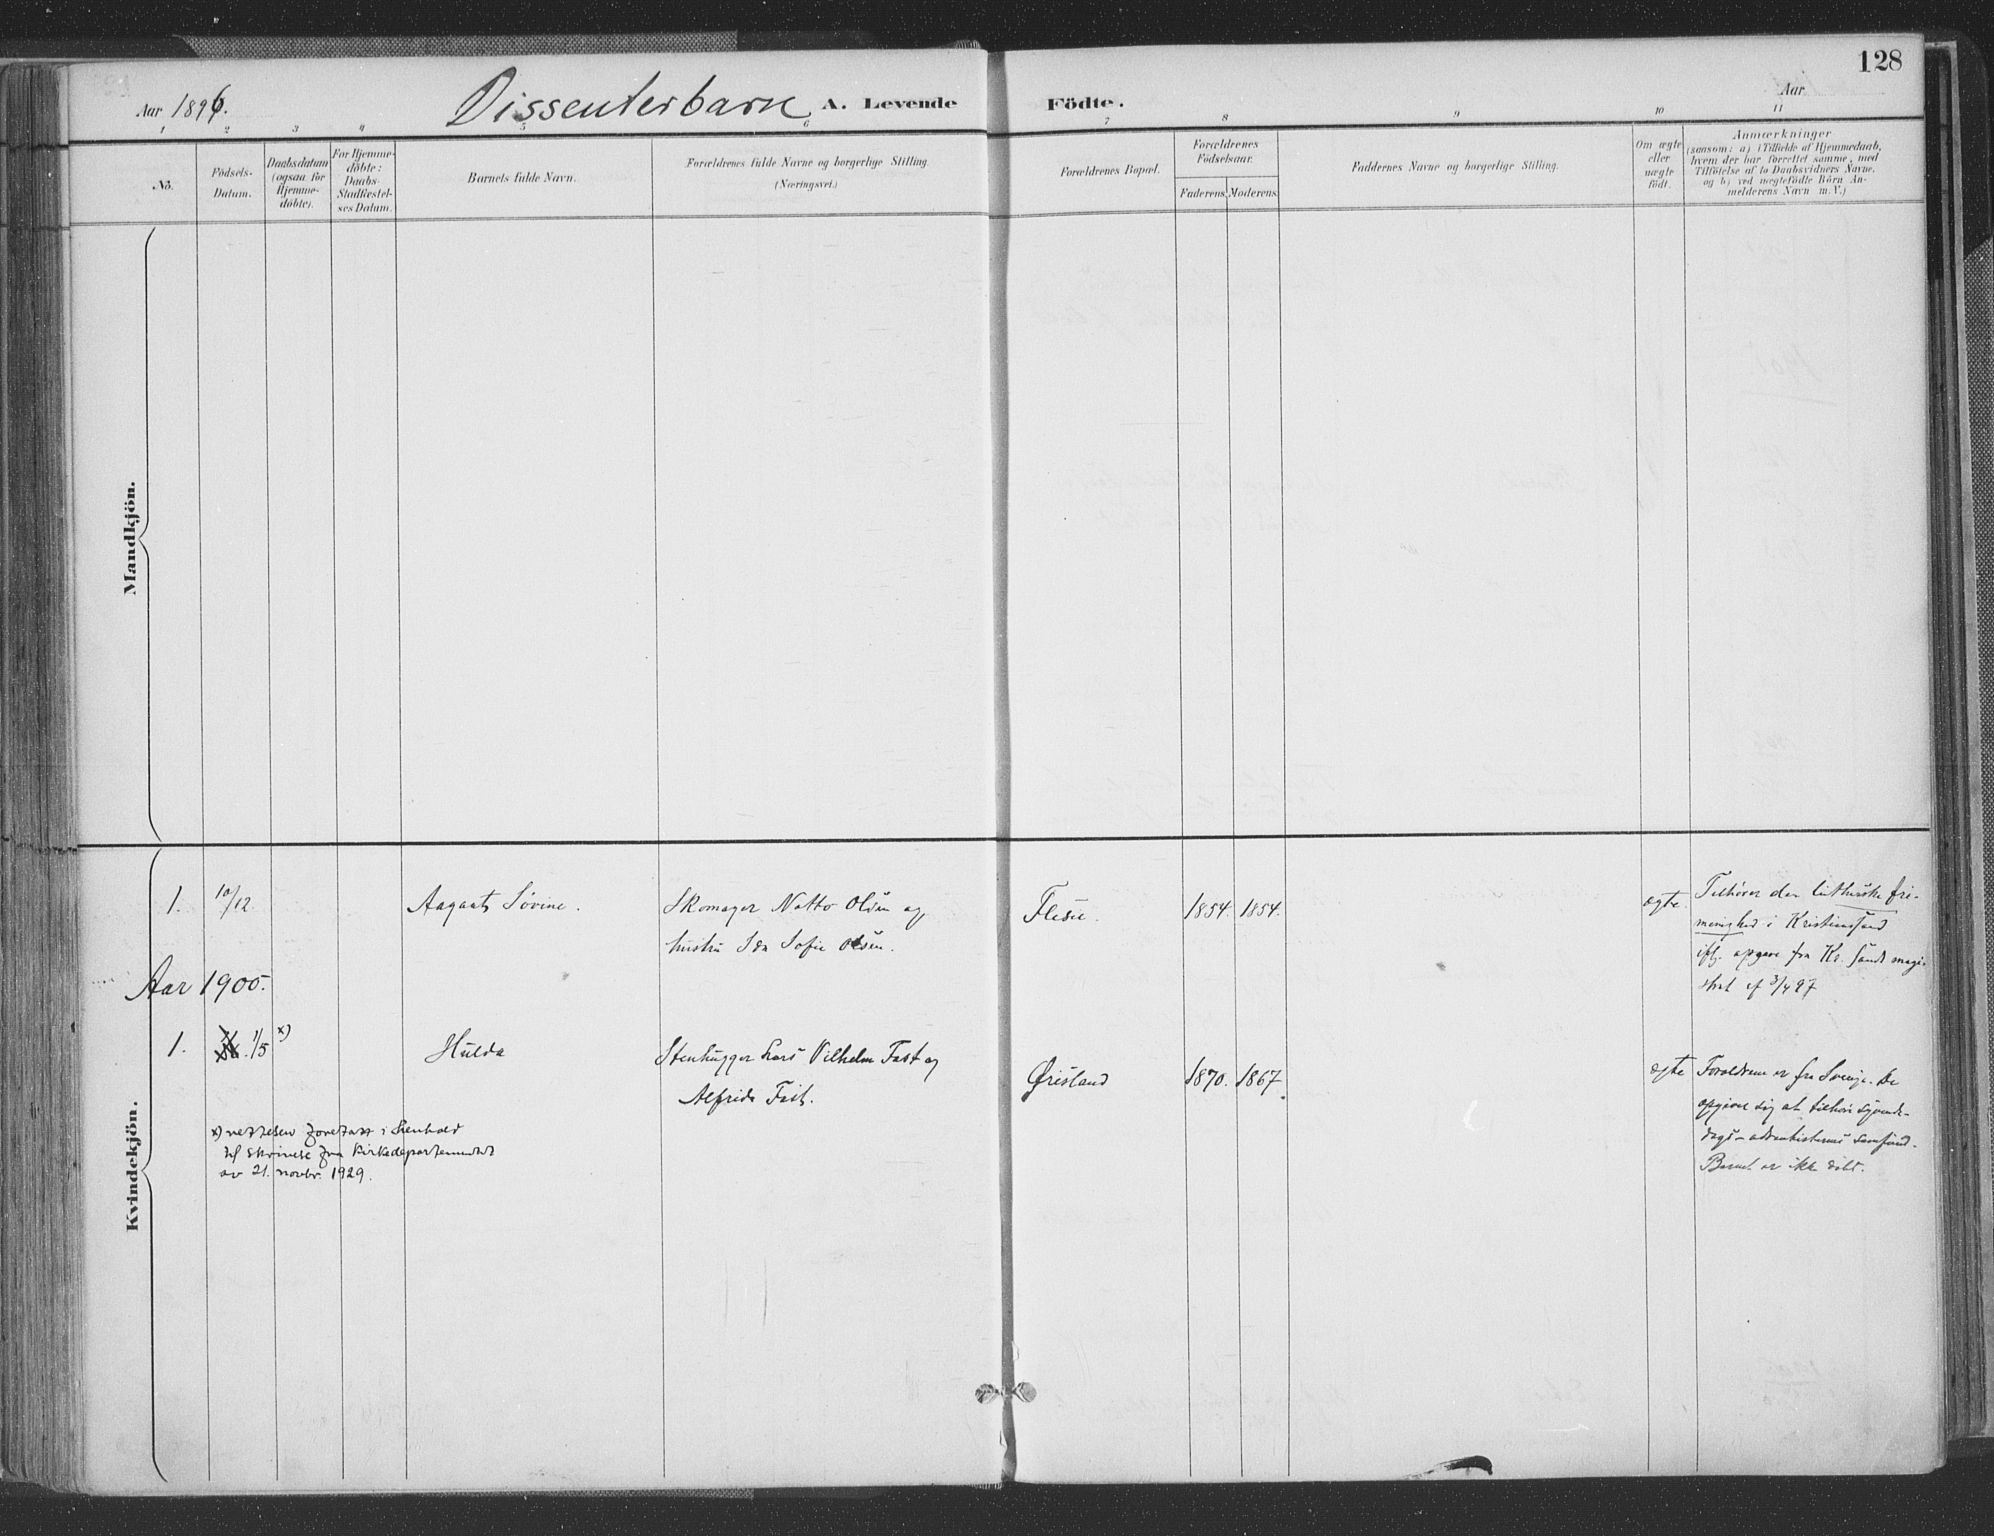 128
Aar 1896. Dissenterbarn A. Levende Födte. Aar
1 2 3 4 5 6 7 8 9 10 11
No.
Födsels-
Datum.
Daabsdatum
(ogsaa for
Hjemme-
döbte).
For Hjemme-
döbte:
Daabs-
Stadfæstel-
ses Datum.
Barnets fulde Navn.
Forældrenes fulde Navne og borgerlige Stilling.
(Næringsvei.)
Forældrenes Bopæl.
Forældrenes
Födselsaar.
Faderens. Moderens.
Faddernes Navne og borgerlige Stilling.
Om ægte
eller
uægte
födt.
Anmærkninger
(saasom: a) i Tilfælde af Hjemmedaab,
hvem der har forrettet samme, med
Tilföielse af to Daabsvidners Navne,
og b) ved uægtefödte Börn An-
melderens Navn m. V.)
Mandkjön.
Kvindekjön.
1. 10/12 Aagaats Sovine. Skomager Natto Olsen og
hustru Ida Sofie Olsen.
Flesie. 1854. 1854. ægte.
Tilhører den lutherske fri-
menighed i Kristianssand
iflg. opgave fra Kr.sands magi-
strat af 3/4 97
Aar 1900.
1. 1/5 x) Hulda Stenhugger Lars Vilhelm Fast og
Alfrida Fast.
Ørisland 1870. 1867. ægte
Forældrene er fra Sverige. De
opgiver sig at tilhøre syvende-
dags-adventisternes samfund.
Barnet er ikke døbt.
x) rettelsen foretatt i henhold
til skrivelse fra Kirkedepartementet
av 21. novbr. 1929.